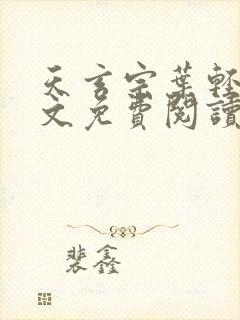 天玄宗葉輕
文免費閱讀
裴鑫